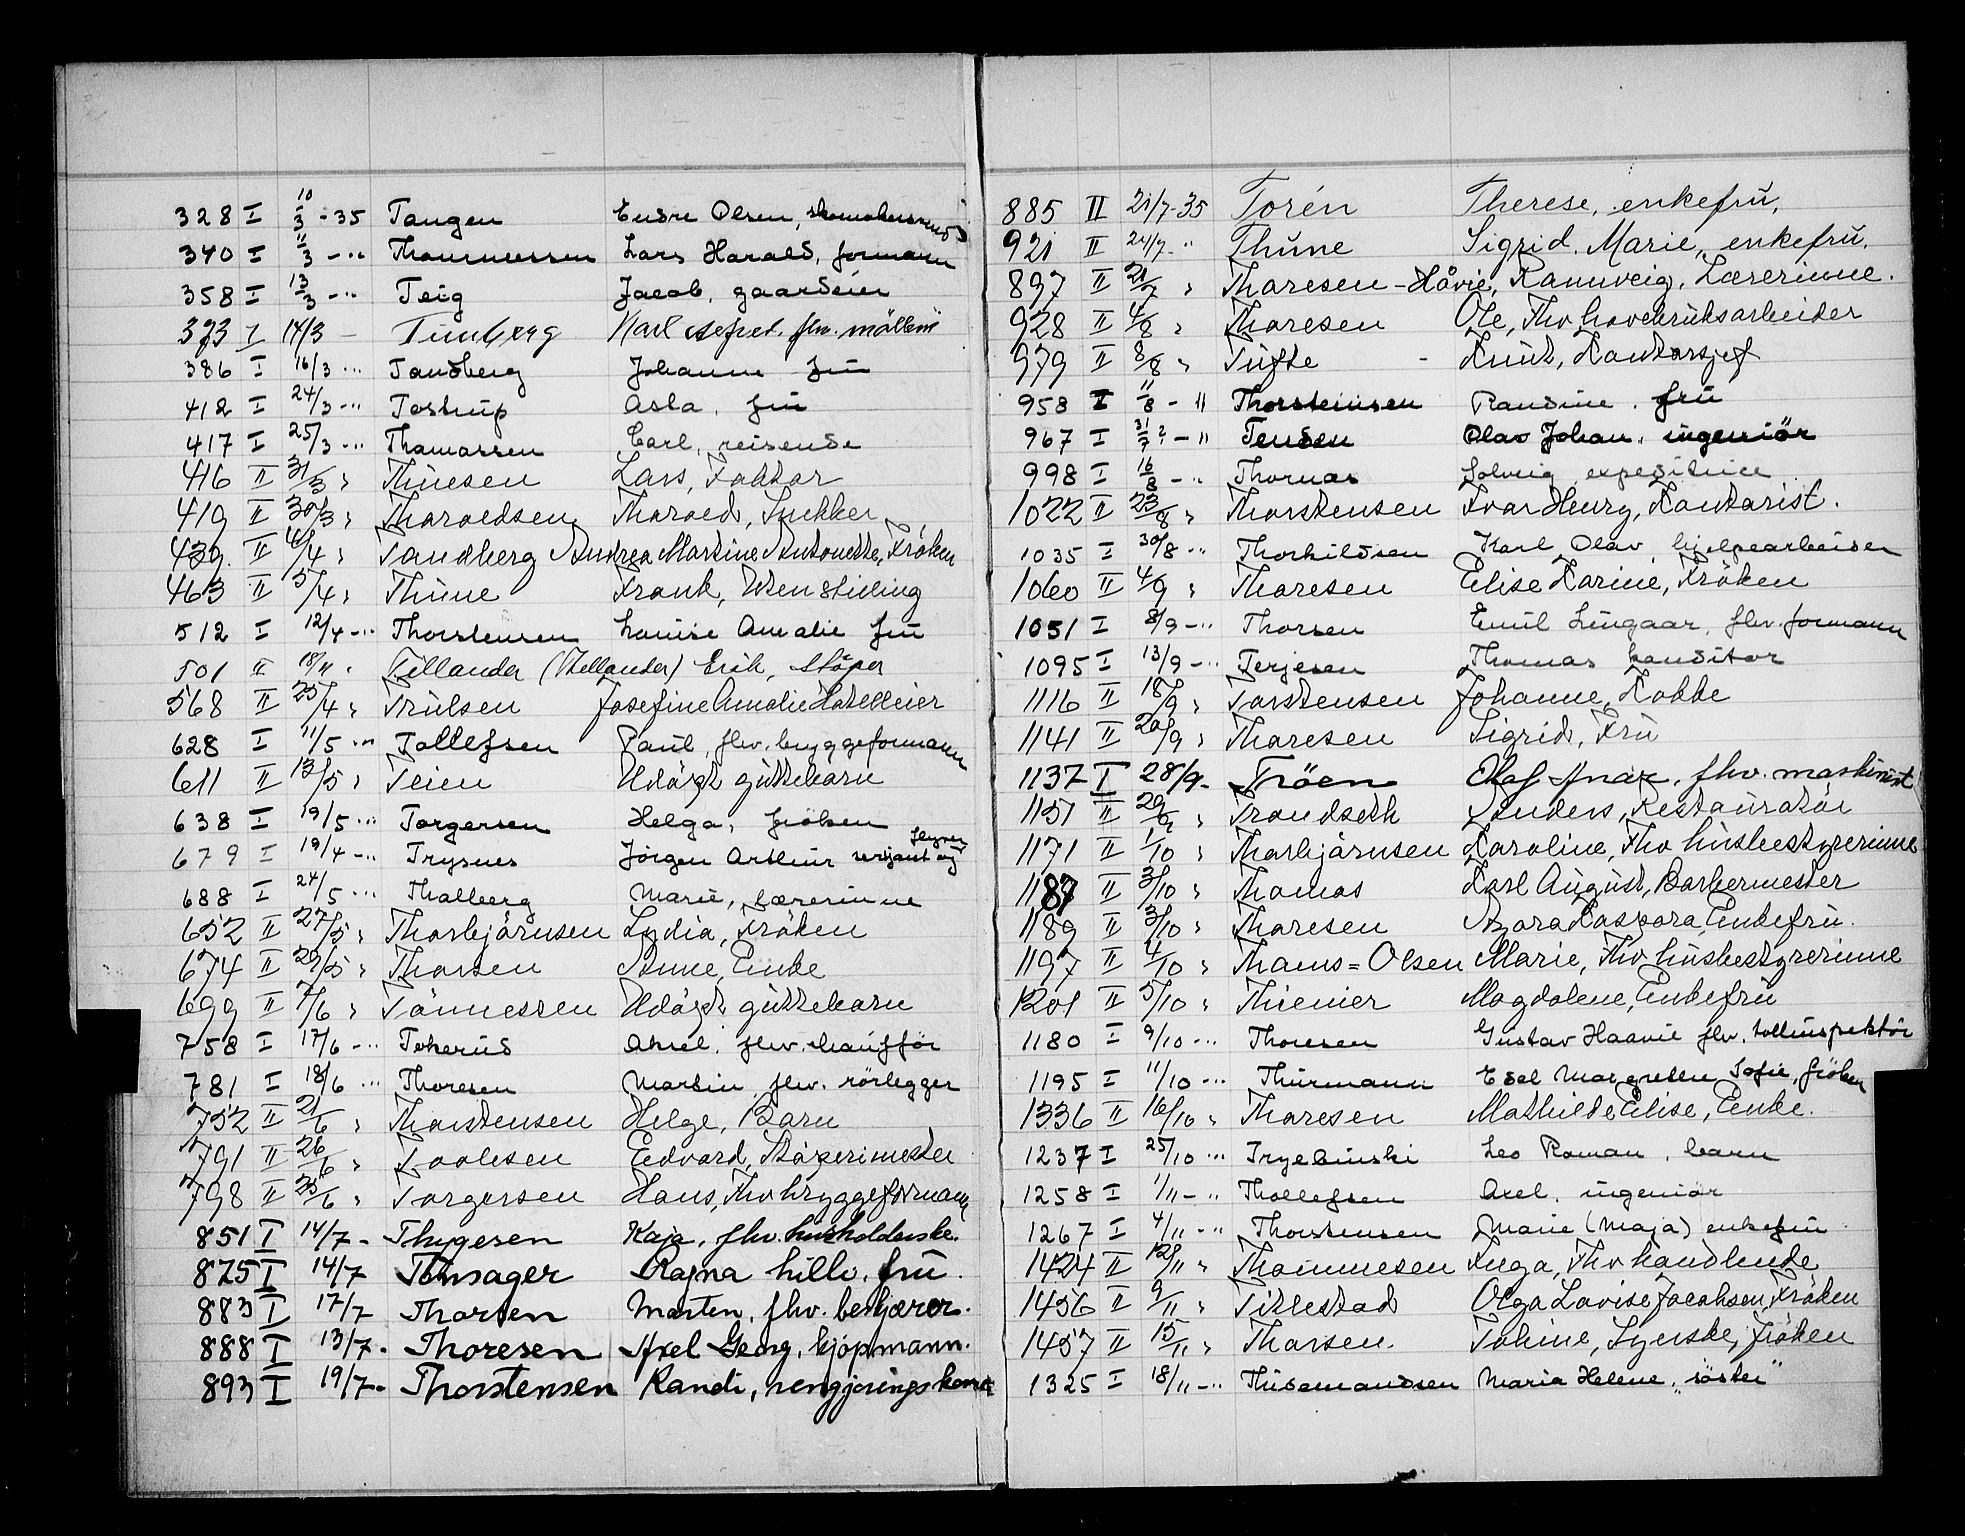 328 I 10/3 - 35 Tangen Endre Olsen, skomakersvend
340 I 11/3 - " Thommessen Lars Harald, formann
358 I 13/3 - " Teig Jacob, gaardeier
373 I 14/3 - Tunberg Karl Alfred, fhv. mölleri
386 I 16/3 - " Tandberg Johanne fru
412 I 24/3 - " Tostrup Asla, fru
417 I 25/3 - " Thomassen Carl, reisende
416 II 31/3 " Thuesen Lars, Faktor
419 II 30/3 " Tharoldsen Tharald, Snekker
439. II 4/4 " Tandberg Andrea Martine Antonette, Fröken
463 II 5/4 " Thune Frank, Uten stilling
512 I 12/4 - " Thorstensen Louise Amalie fru
501 II 18/4 " Tillander (Hellander) Erik, Stöper
568 II 25/4 " Trulsen Josefine Amalie Hotelleier
628 I 11/5 - " Tollefsen Paul, fhv. bryggeformann
611 II 13/5 " Teien Udöpt guttebarn
638 I 19/5 - " Torgersen Helga, fröken
679 I 19/4 - " Trysnes Jörgen Arthur serjant og flyver
688 I 24/5 - " Thalberg Marie, lærerinne
652 II 27/5 " Thorbjörnsen Lydia, Fröken
674 II 29/5 " Thorsen Anne, Enke
699 II 7/6 " Tönnessen Udöpt guttebarn
758 I 17/6 - " Tokerud Aksel, fhv. chaufför
781 I 18/6 - " Thoresen Martin, fhv. rörlegger
752 II 21/6 " Thorstensen Helge, Barn
791 II 26/6 " Taalesen Edvard, Stöperimester
798 II 25/6 " Torgersen Hans, Fhv bryggeformann
851 I 14/7 - Thygesen Kaja, fhv. husholderske.
875 I 14/7 Tonsager Ragna hillv. fru.
883 I 17/7 Thorsen Marten, fhv. beskjærer.
888 I 13/7 - Thoresen Axel Georg, kjöpmann.
893 I 19/7 - Thorstensen Randi, rengjöringskone
885 II 21/7 - 35 Torén Therese, enkefru,
921 II 24/7 - " Thune Sigrid Marie, enkefru.
897 II 21/7 " Thoresen - Håvie, Rannveig, Lærerinne.
928 II 4/8 " Thoresen Ole, Fhv havebruksarbeider
979 II 8/8 " Tufte - Knut, Kontorsjef
958 I 11/8 - " Thorsteinsen Randine, fru
967 I 31/7? - " Tenden Olav Johan, ingeniör
998 I 16/8 - " Thomas Solveig expeditrice
1022 II 23/8 " Thorstensen Ivar Henry, Kontorist.
1035 I 30/8 - " Thorkildsen Karl Olav, hjelpearbeider
1060 II 4/9 " Thoresen Elise Karine, Fröken
1051 I 8/9 - " Thorsen Emil Lingaar, fhv. formann
1095 I 13/9 - " Terjesen Thomas konditor
1116 II 18/9 " Torstensen Johanne, Kokke
1141 II 20/9 " Thoresen Sigrid, Fru
1137 I 28/9 - Tröen Olaf Anar, fhv. maskinist
1151 II 29/9 " Trondseth Anders, Restauratör
1171 II 1/10 " Thorbjörnsen Karoline, Fhv husbestyrerinne
1187 II 3/10 " Thomas Karl August, Barbermester
1189 II 3/10 " Thoresen Thora Kaspara, Enkefru.
1197 II 4/10 " Thams = Olsen Marie, Fhv husbestyrerinne
1201 II 5/10 " Thiemer Magdalene, Enkefru
1180 I 9/10 - " Thoresen Gustav Haavie fhv. tollinspektör
1195 I 11/10 - " Thurmann Edel Margrethe Sofie, fröken
1336 II 16/10 " Thoresen Mathilde Elise, Enke.
1237 I 25/10 - " Tryebinski Leo Roman, barn
1258 I 1/11 - " Thollefsen Axel, ingeniör
1267 I 4/11 - " Thorstensen Marie (Maja) enkefru
1424 II 12/11 " Thommesen Inga, Fhv handlende
1456 II 9/11 " Titlestad Olga Lovise Jacobsen, Fröken
1457 II 15/11 " Thorsen. Tomine, Syerske, fröken
1325 I 18/11 - " Thidemandsen Maria Helene, "söster"